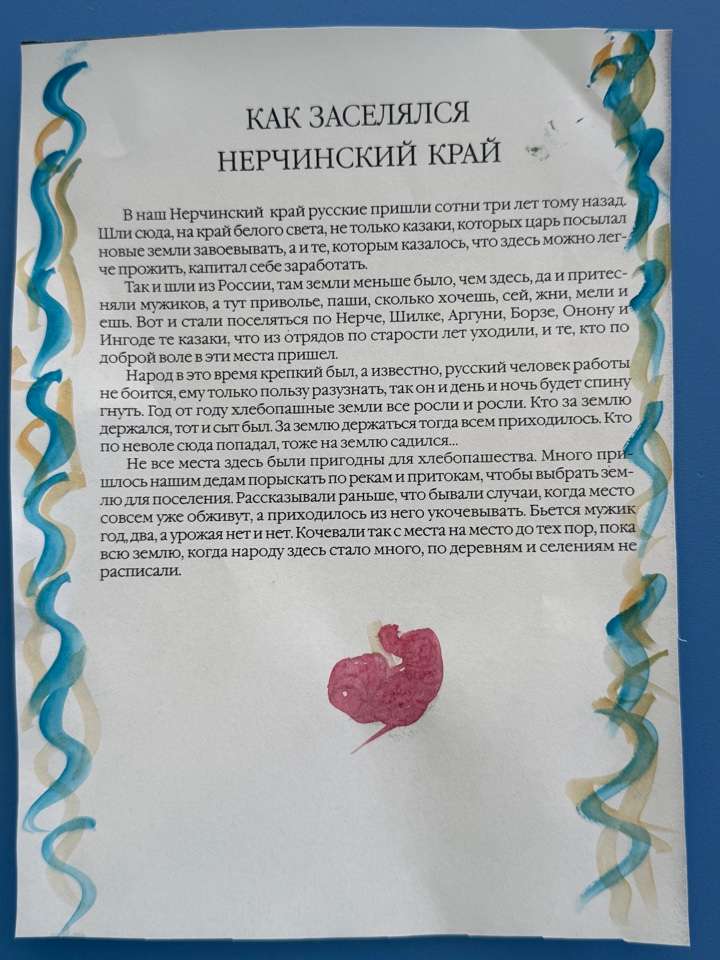 КАК ЗАСЕЛЯЛСЯ
НЕРЧИНСКИЙ КРАЙ
В наш Нерчинский край русские пришли сотни три лет тому назад.
Шли сюда, на край белого света, не только казаки, которых царь посылал
новые земли завоевывать, а и те, которым казалось, что здесь можно лег-
че прожить, капитал себе заработать.
Так и шли из России, там земли меньше было, чем здесь, да и притес-
няли мужиков, а тут приволье, паши, сколько хочешь, сей, жни, мели и
ешь. Вот и стали поселяться по Нерче, Шилке, Аргуни, Борзе, Онону и
Ингоде те казаки, что из отрядов по старости лет уходили, и те, кто по
доброй воле в эти места пришел.
Народ в это время крепкий был, а известно, русский человек работы
не боится, ему только пользу разузнать, так он и день и ночь будет спину
гнуть. Год от году хлебопашные земли все росли и росли. Кто за землю
держался, тот и сыт был. За землю держаться тогда всем приходилось. Кто
по неволе сюда попадал, тоже на землю садился...
Не все места здесь были пригодны для хлебопашества. Много при-
шлось нашим дедам порыскать по рекам и притокам, чтобы выбрать зем-
лю для поселения. Рассказывали раньше, что бывали случаи, когда место
совсем уже обживут, а приходилось из него укочевывать. Бьется мужик
год, два, а урожая нет и нет. Кочевали так с места на место до тех пор, пока
всю землю, когда народу здесь стало много, по деревням и селениям не
расписали.